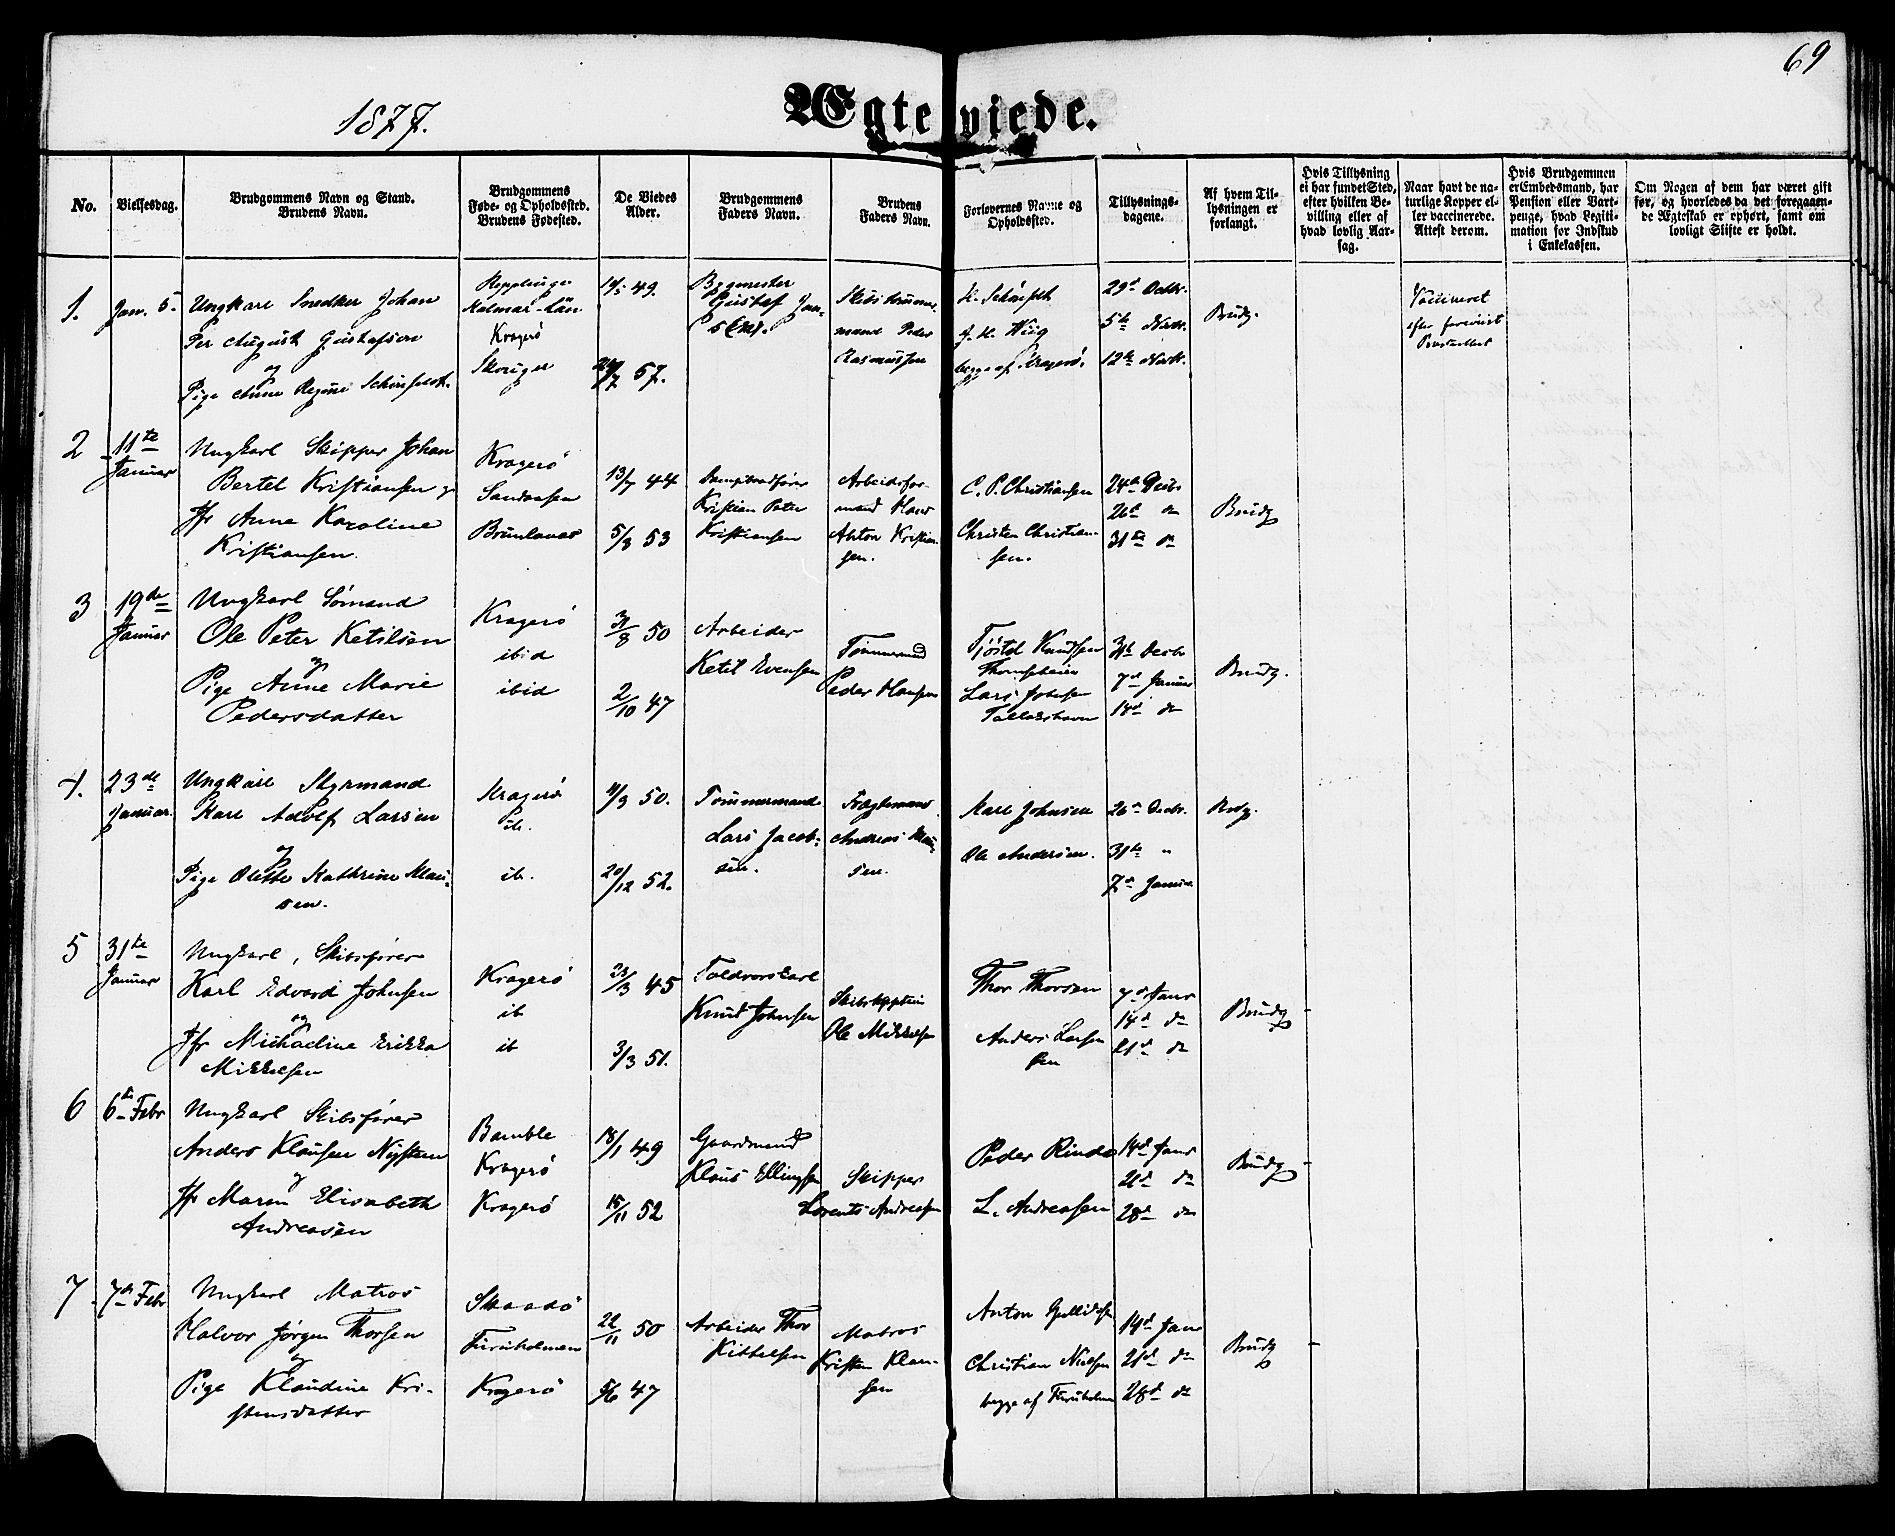 69
1877.
Ægteviede.
No.
Vielsesdag.
Brudgommens Navn og Stand.
Brudens Navn.
Brudgommens
Føde- og Opholdssted.
Brudens Fødested.
De Viedes
Alder.
Brudgommens
Faders Navn.
Brudens
Faders Navn.
Forlovernes Navne og
Opholdssted.
Tillysnings-
dagene.
Af hvem Til-
lysningen er
forlangt.
Hvis Tillysning
ei har fundet Sted,
efter hvilken Be-
villing eller af
hvad lovlig Aar-
sag.
Naar havt de na-
turlige Kopper el-
ler vaccinerede.
Attest derom.
Hvis Brudgommen
er Embedsmand, har
Pension eller Vart-
penge, hvad Legiti-
mation for Indskud
i Enkekassen.
Om Nogen af dem har været gift
før, og hvorledes da det foregaaen-
de Ægteskab er ophørt, samt om
lovligt Skifte er holdt.
1.
Jan. 5.
Ungkarl Snedker Johan
Per August Gustafson
og
Pige Anne Regine Schønfeldt
Repplinge
Kalmar Län
Kragerø
49.
57.
Bygmester
Gustaf
Peder
Rasmussen
J. H. Wiig
begge af Kragerø.
29d Octbr.
5te Novbr.
12te Novbr.
Brudg.
Vaccineret
efter forevist
Præsteattest
2
11te
Januar
Ungkarl Skipper Johan
Bertel Kristiansen og
Jfr Anne Karoline
Kristiansen.
Kragerø
Sandaasen
Brunlanæs
13/7 44
5/8 53
Kristian Peter
Kristiansen
Arbeidsfor-
mand Hans
Anton Kristian-
sen.
C. P. Christiansen
Christen Christian-
sen.
24de Decbr
26d do
31te do
Brudg
3
19de
Januar
Ungkarl Sømand
Ole Peter Ketilsen
og
Pige Anne Marie
Pedersdatter
Kragerø
ibid
ibid
31/8 50
2/10 47
Arbeider
Ketil Evensen
Tømmermand
Peder Hansen
Tjøstel Knudsen
Lars Johnsen
Tallakshavn
31te Decbr
7de Januar
14d do
Brudg.
4.
23de
Januar.
Ungkarl Styrmand
Karl Adolf Larsen
og
Pige Olette Kathrine Mau-
sen.
Kragerø
ib.
ib.
11/3 50.
20/12 52.
Tømmermand
Lars Jacob-
sen.
Fragtemand
Andreas Mau-
sen.
Karl Johnsen
Ole Andersen.
26de Decbr.
31te "
7de Januar.
Brudg.
5
31te
Januar
Ungkarl, Skibsfører
Karl Edvard Johnsen
og
Jfr Michaeline Erikka
Mikkelsen
Kragerø
ib
ib
23/3 45
3/3 51.
Toldvorskarl
Knud Johnsen
Skibskaptein
Ole Mikkelsen
Thor Thorsen
Anders Larsen
7d Janr
14d do
21d do
Brudg
6
6te Febr
Ungkarl Skibsfører
Anders Klausen Nysteen
og
Jfr Maren Elisabeth
Andreasen
Bamble
Kragerø
Kragerø
18/1 49
15/11 52
Gaardmand
Klaus Ellingsen
Skipper
Lorents Andreasen
Peder Rinde
L. Andreasen
14d Janr
21d do
28d do
Brudg
7
7de Febr
Ungkarl Matros
Halvor Jørgen Thorsen
og
Pige Klaudine Kri-
stensdatter
Skaadø
Furuholmen
Kragerø
22/11 50
5/6 47
Arbeider Thor
Kittelsen
Matros
Kristen Klau-
sen
Anton
Christian Nielsen
begge af Furuholmen
14d Janr
21d do
28d do
Brudg